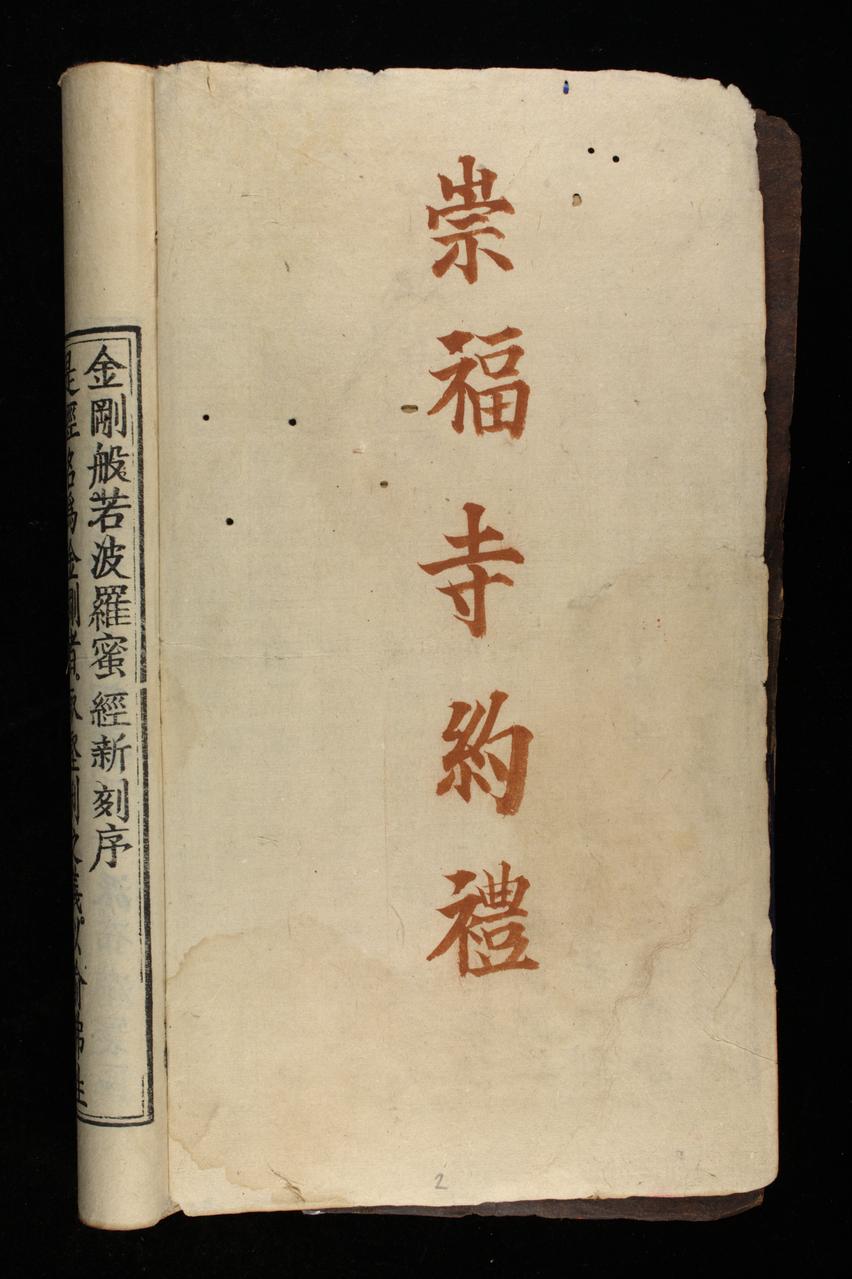 崇福寺約禮
2
金剛般若波羅蜜經新刻序
是經名為金剛者取堅剛之義以喻